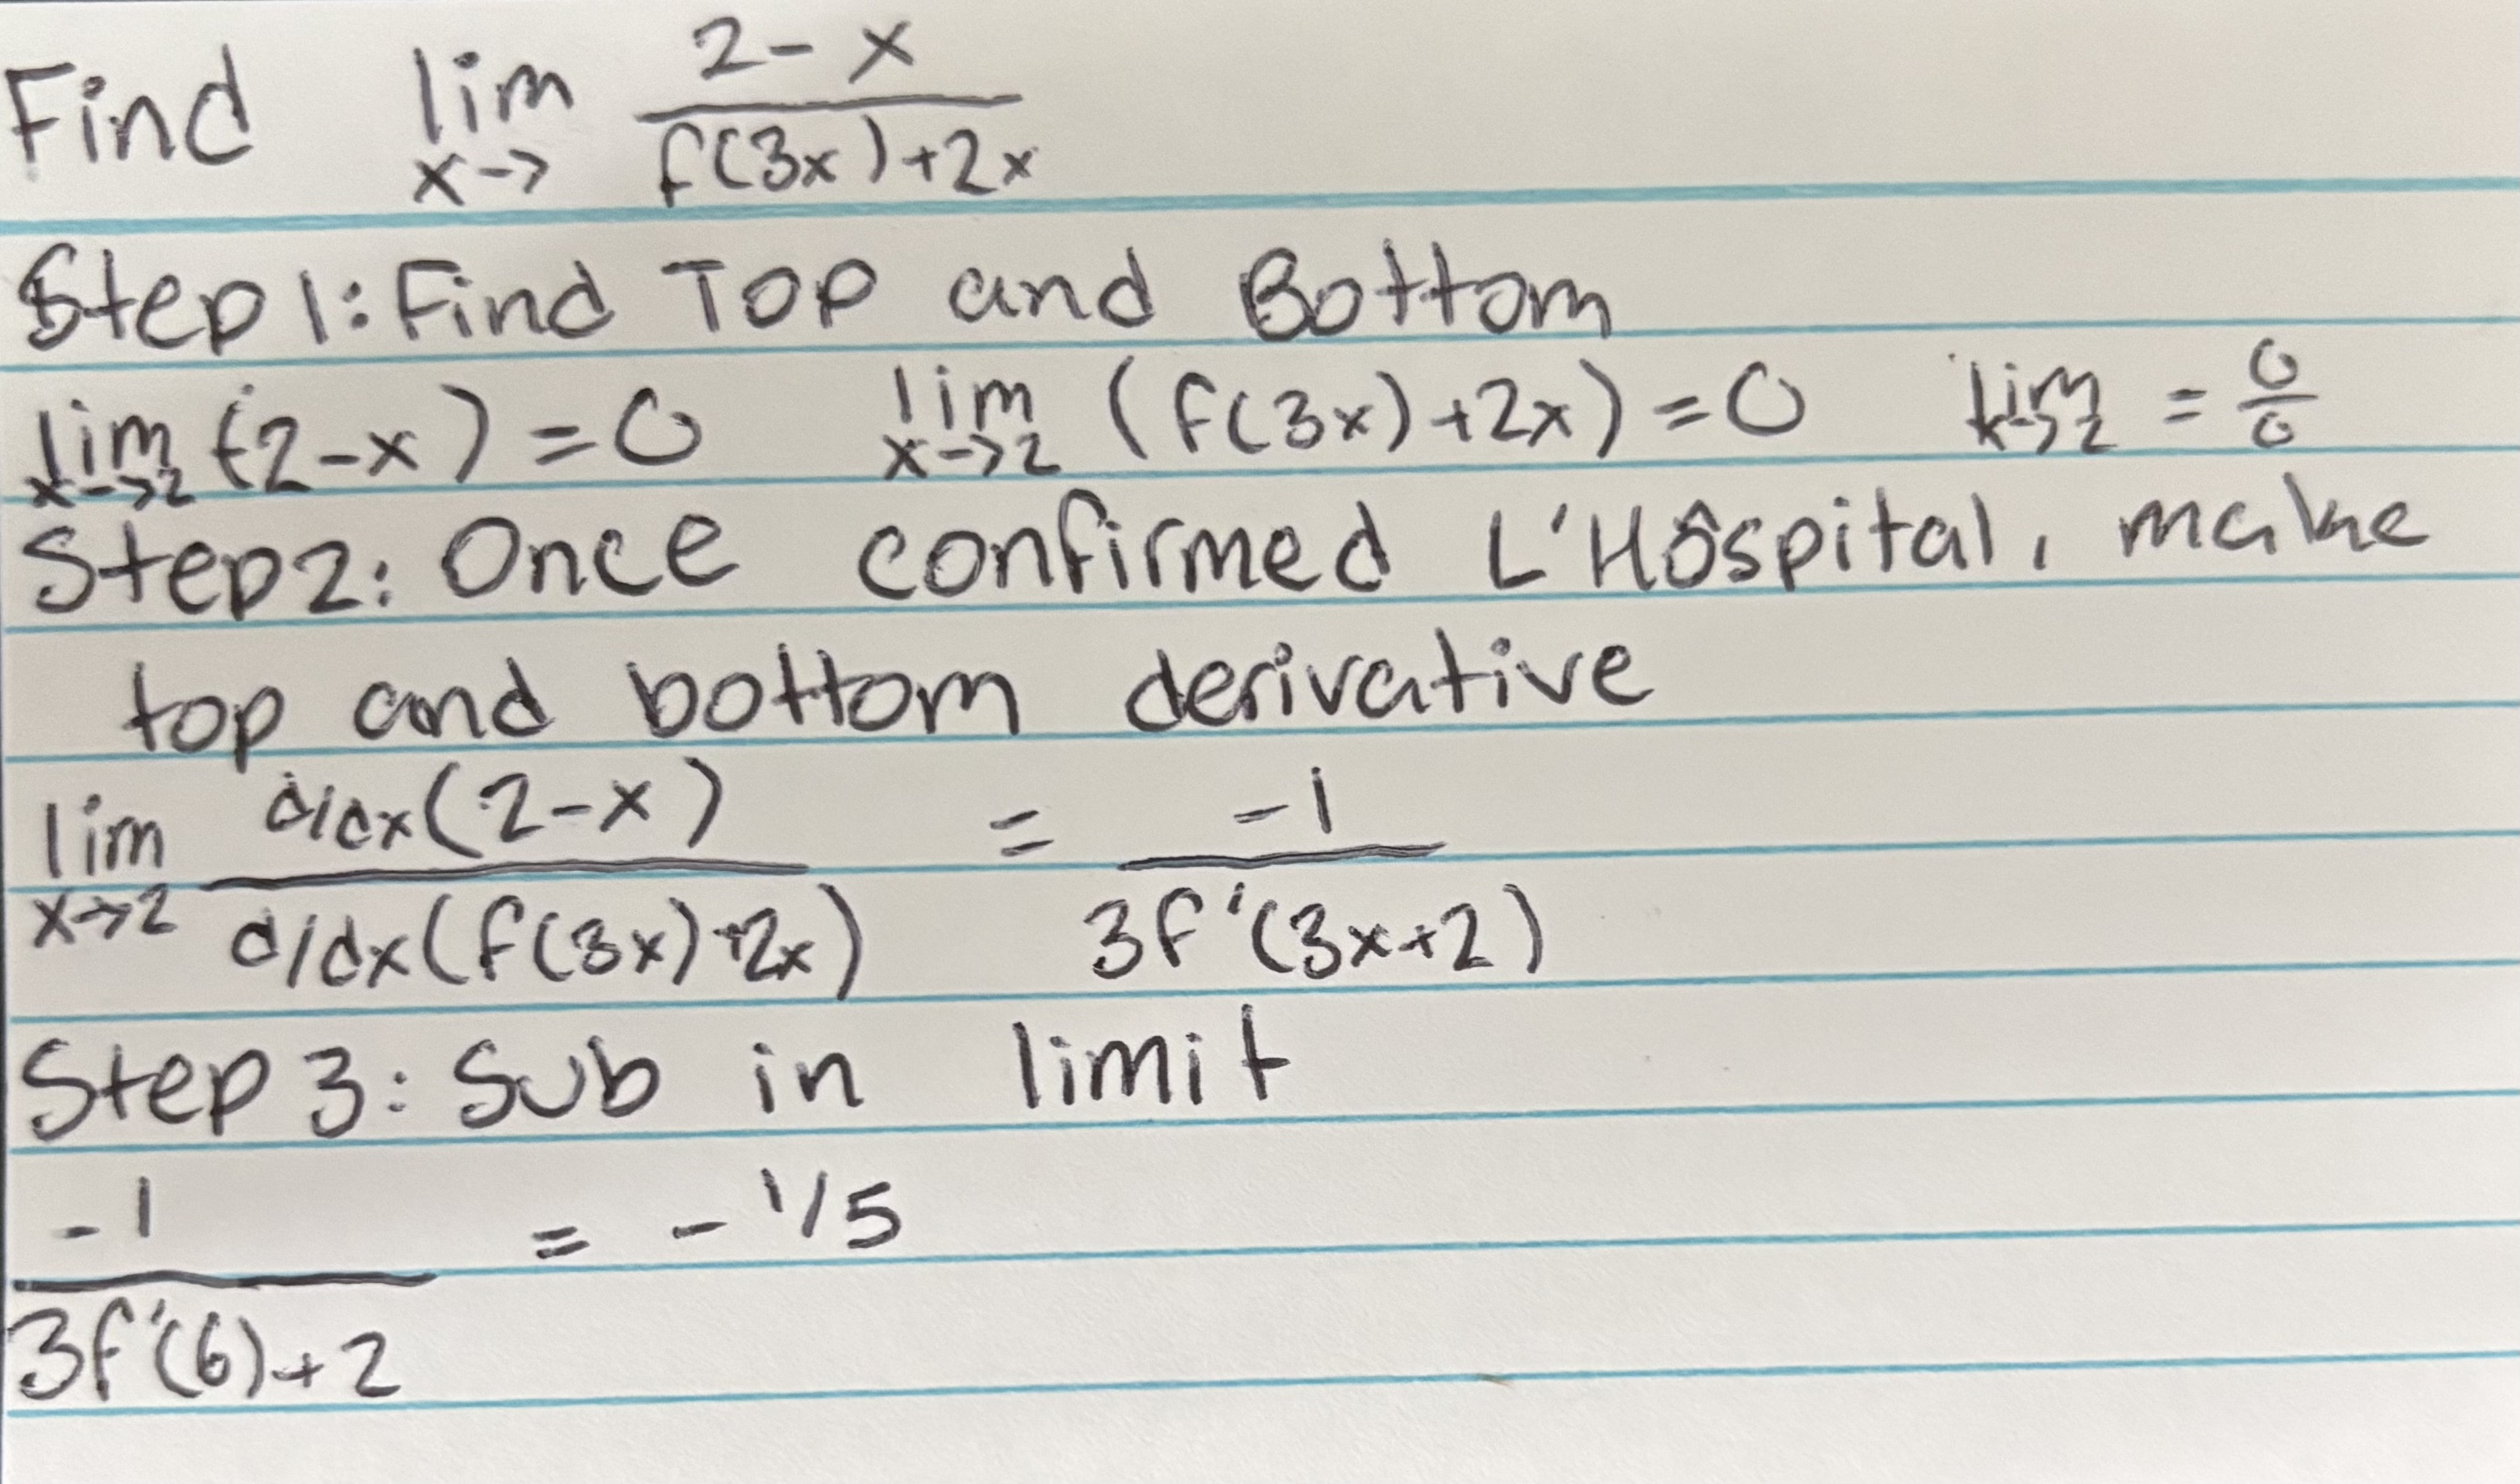 Find lim x-> 2-x / f(3x)+2x
Step 1: Find Top and Bottom
lim x->2 (2-x) = 0 lim x->2 (f(3x)+2x) = 0 lim x->2 = 0/0
Step 2: Once confirmed L'Hôspital, make
top and bottom derivative
lim x->2 d/dx(2-x) / d/dx(f(3x)+2x) = -1 / 3f'(3x+2)
Step 3: Sub in limit
-1 / 3f'(6)+2 = -1/5